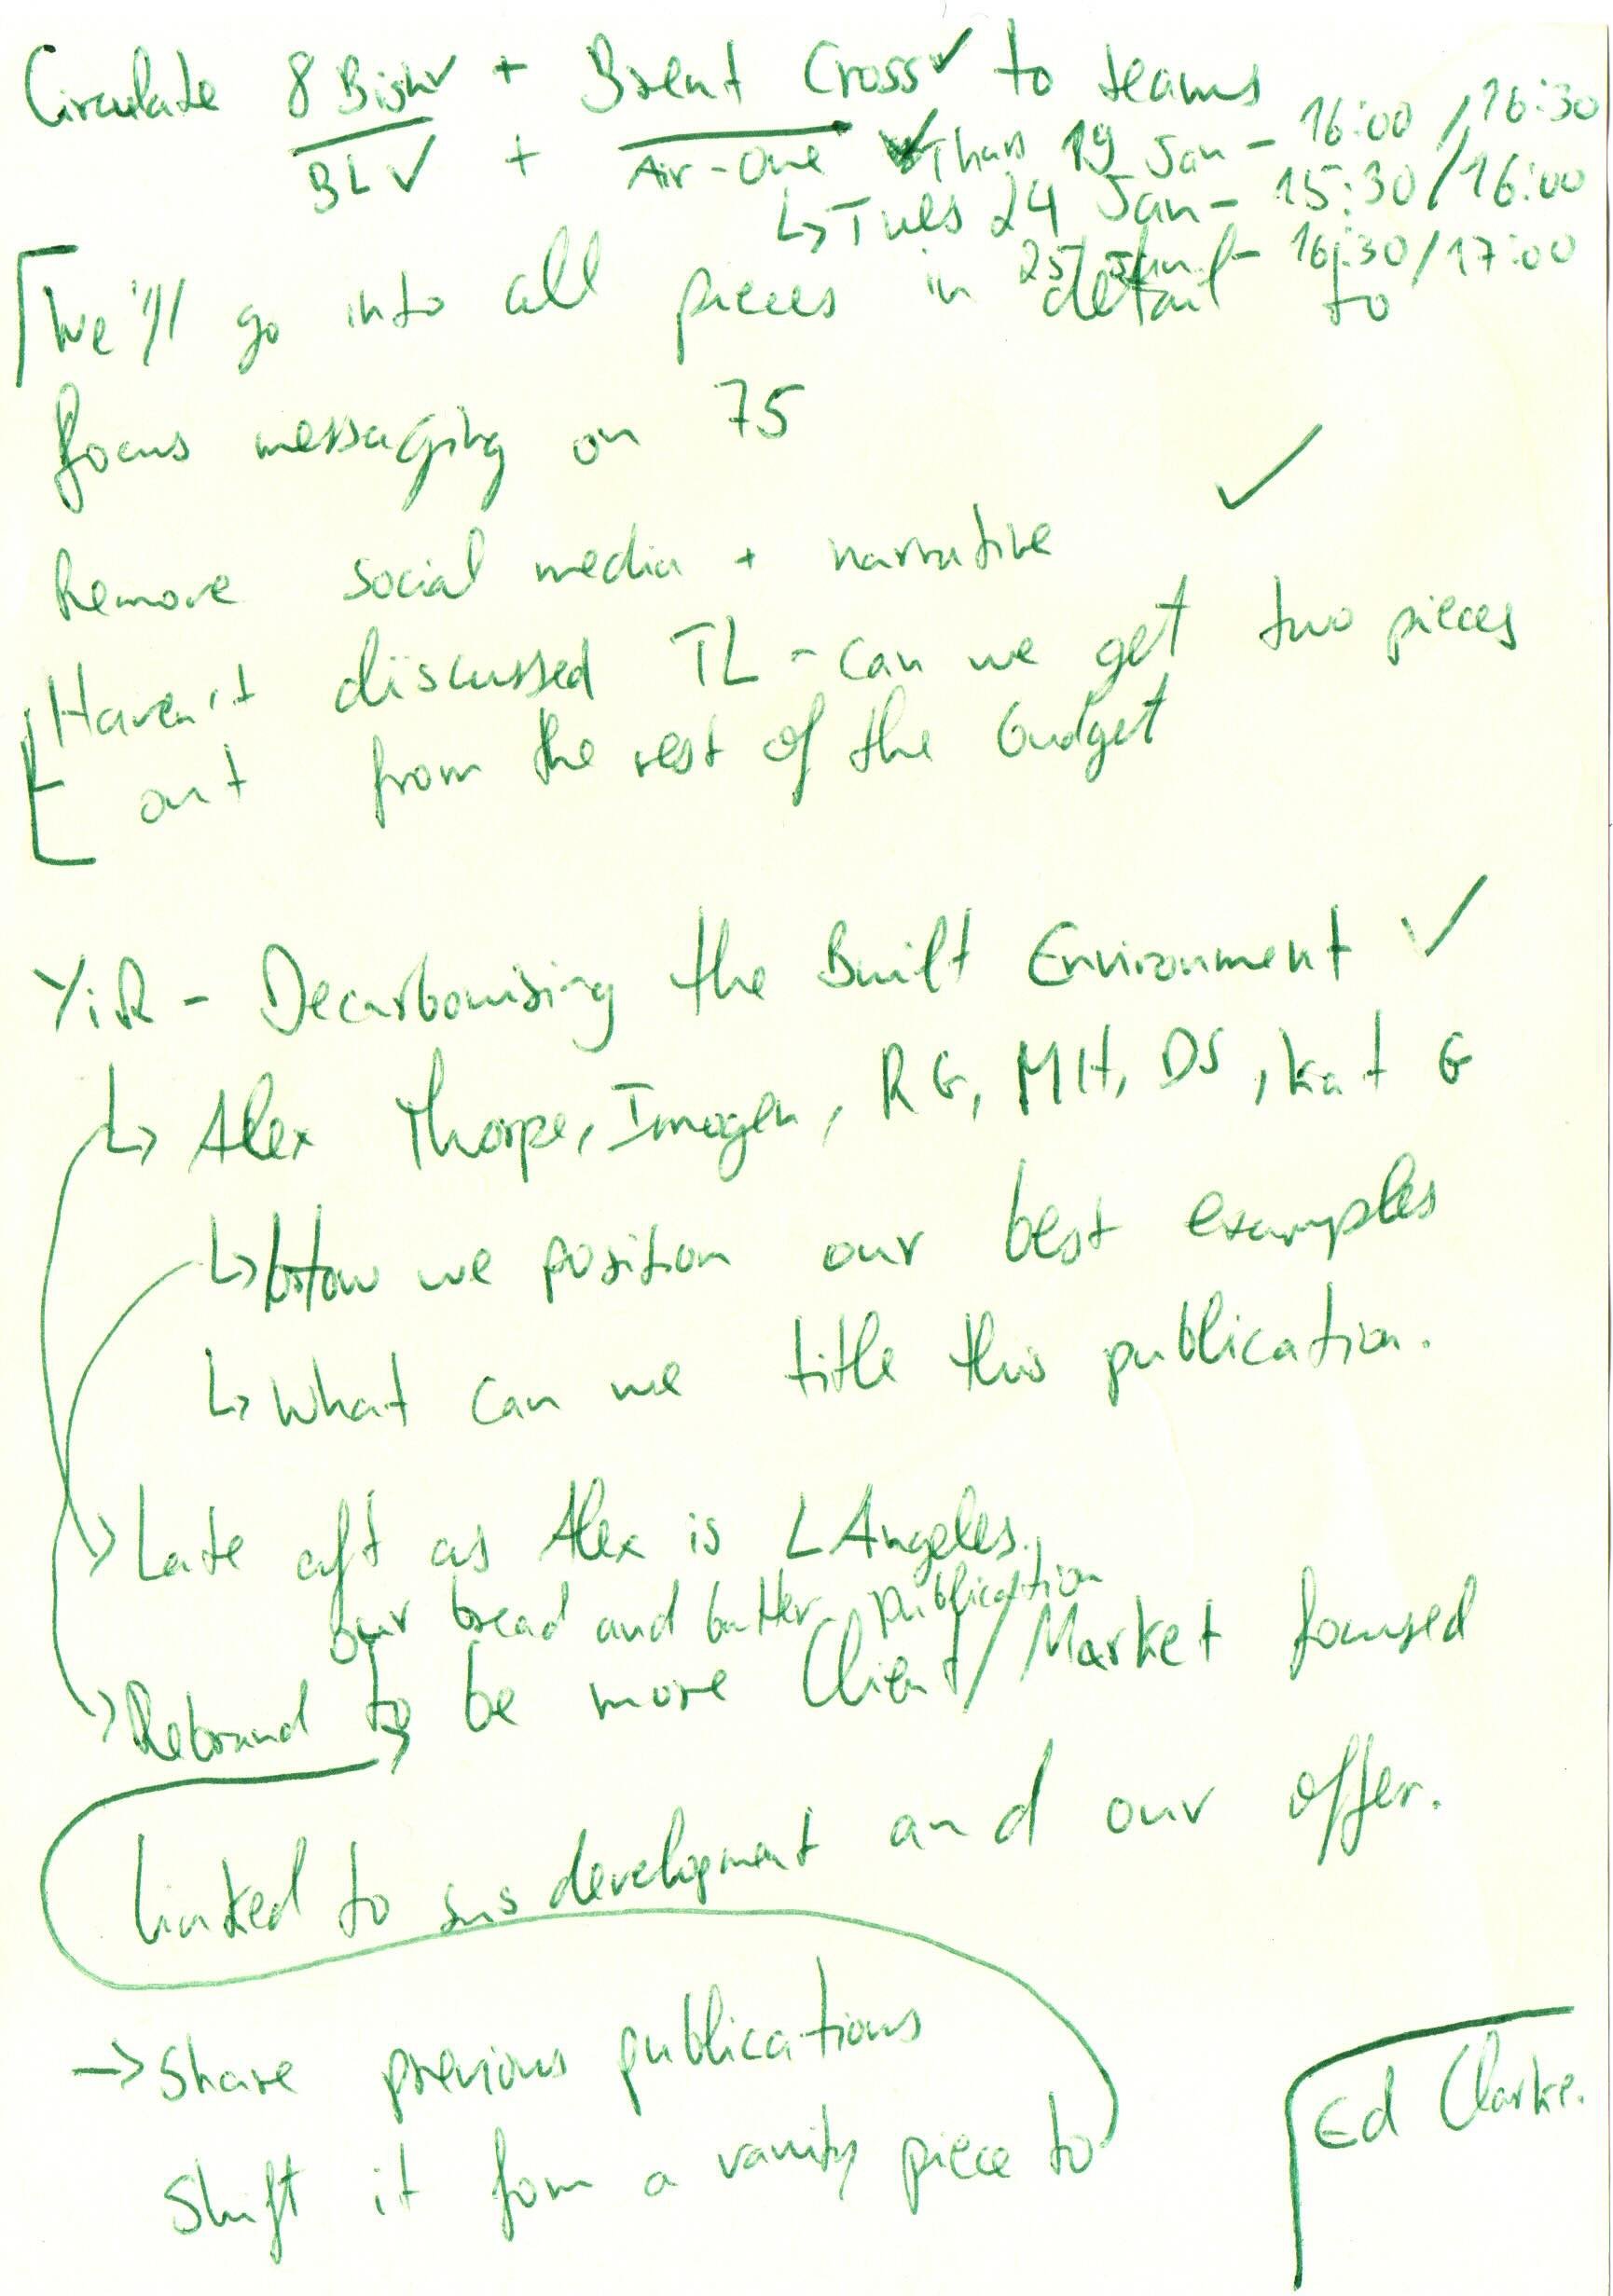 Circulate 8 Bish ✓ + Brent Cross ✓ to teams
BL ✓ + Air-One ✓ Thurs 19 Jan - 16:00 / 16:30
↳ Tues 24 Jan - 15:30 / 16:00
25 Jan - 16:30 / 17:00
We'll go into all pieces in detail to
focus messaging on 75
Remove social media + narrative ✓
Haven't discussed TL - can we get two pieces
out from the rest of the budget
YiR - Decarbonising the Built Environment ✓
↳ Alex Thorpe, Imogen, RG, MH, DS, Kat G
↳ How we position our best examples
↳ What can we title this publication.
→ Late aft as Alex is L Angeles.
our bread and butter publication
→ Rebrand to be more Client / Market focused
linked to sus development and our offer.
→ Share previous publications
Shift it fom a vanity piece to
Ed Clarke.